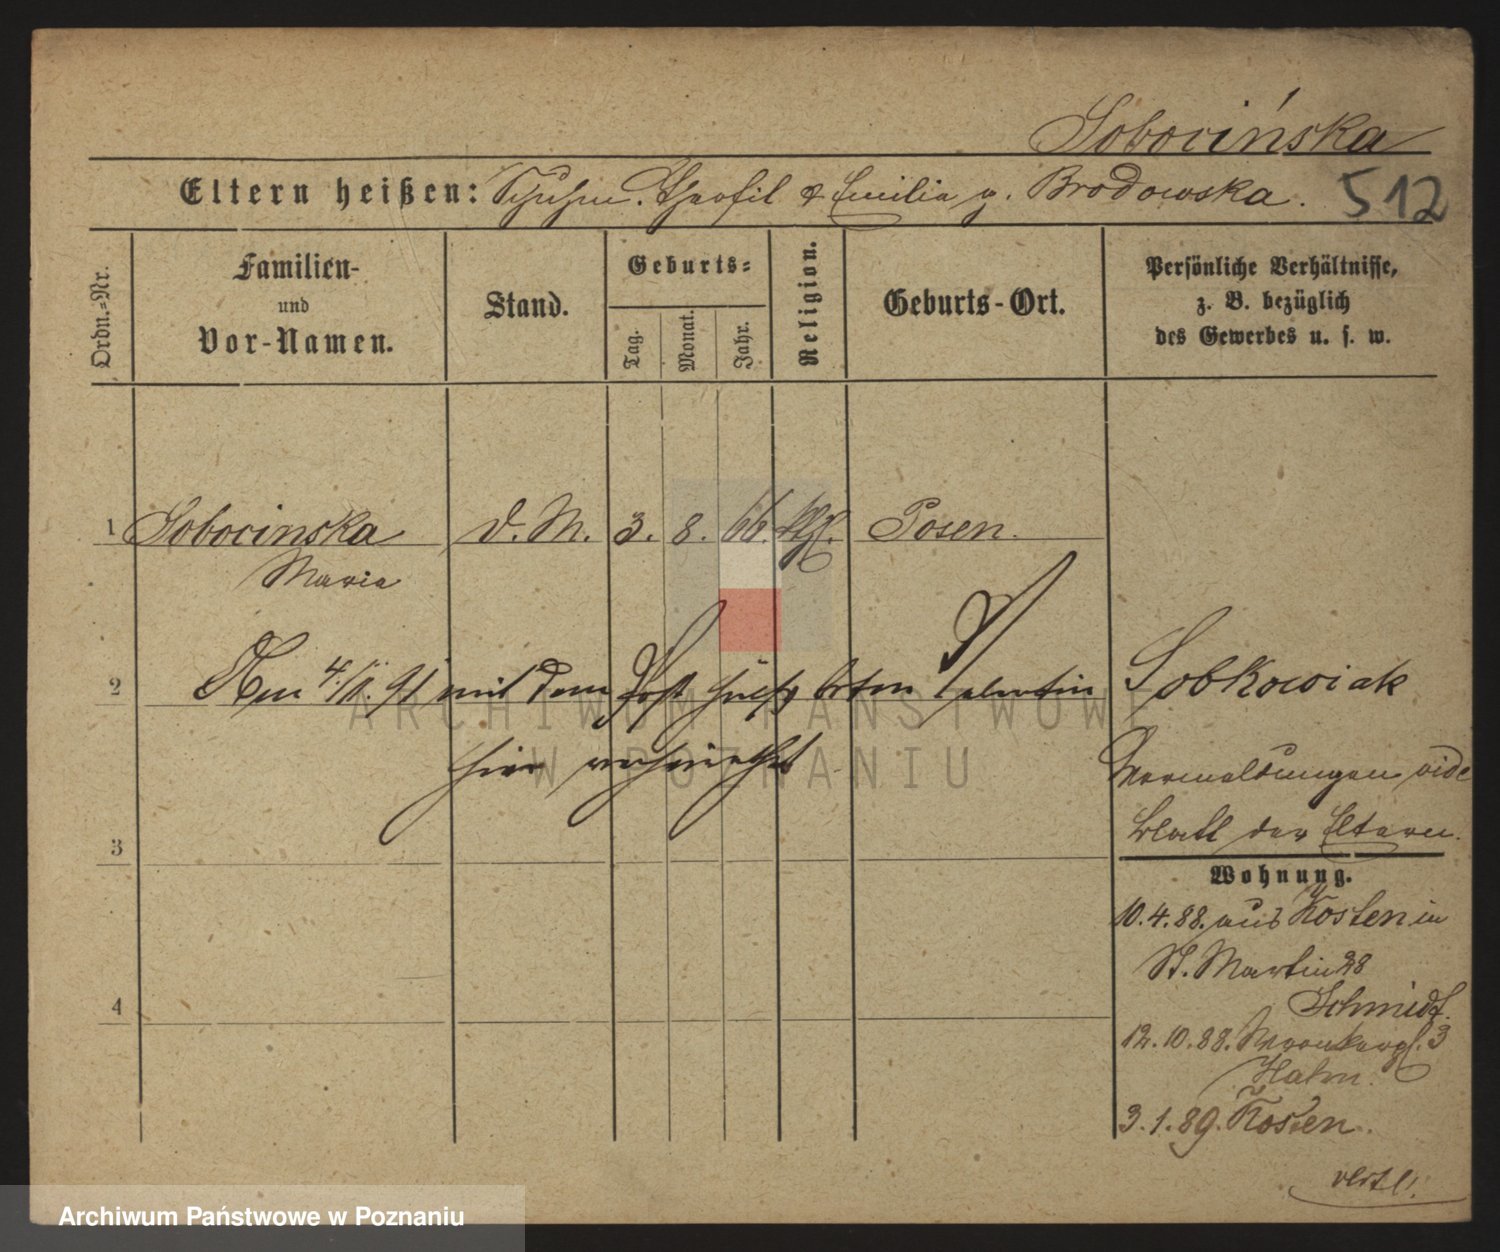 Sobocińska
Eltern heißen: Schuhm. Theofil & Emilia g. Brodowska.
512
Ordn.-Nr.
Familien-
und
Vor-Namen.
Stand.
Geburts-
Tag.
Monat.
Jahr.
Religion.
Geburts-Ort.
Persönliche Verhältnisse,
z. B. bezüglich
des Gewerbes u. s. w.
1 Sobocinska d. M. 3. 8. 66. kth. Posen.
Maria
2 Am 4./II. 91 mit dem Post hülfs boten Valentin Sobkowiak
hier verheirathet
Anmeldungen vide
Blatt der Eltern.
3
Wohnung.
10.4.88. aus Kosten in
St. Martin 28
Schmidt.
4
12.10.88. Wronkergs. 3
Hahn.
3.1.89. Kosten.
ARCHIWUM PAŃSTWOWE
W POZNANIU
Archiwum Państwowe w Poznaniu